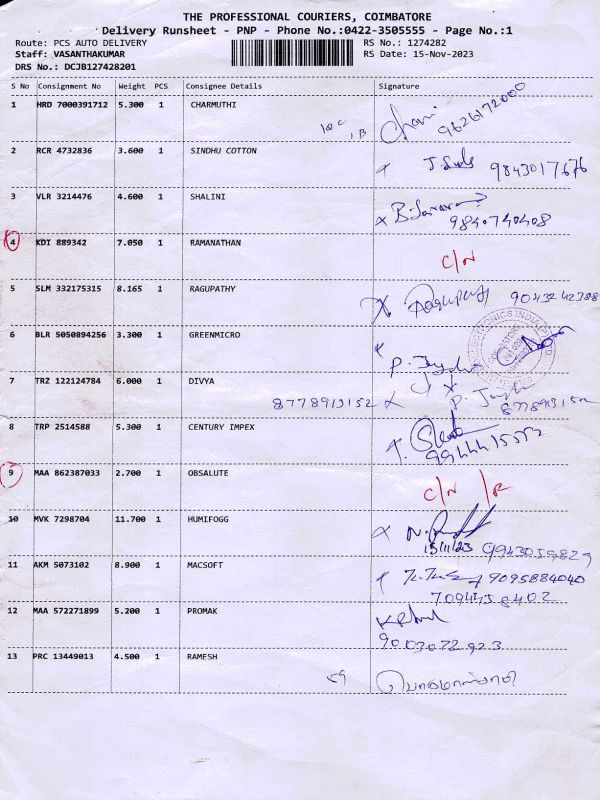 THE PROFESSIONAL COURIERS, COIMBATORE
Delivery Runsheet - PNP - Phone No.:0422-3505555 - Page No.:1
Route: PCS AUTO DELIVERY RS No.: 1274282
Staff: VASANTHAKUMAR RS Date: 15-Nov-2023
DRS No.: DCJB127428201
S No Consignment No Weight PCS Consignee Details Signature
1 HRD 7000391712 5.300 1 CHARMUTHI
9626172000
2 RCR 4732836 3.600 1 SINDHU COTTON
9843017676
3 VLR 3214476 4.600 1 SHALINI
9840740408
4 KDI 889342 7.050 1 RAMANATHAN
C/N
5 SLM 332175315 8.165 1 RAGUPATHY
Ragupathy 9043242388
6 BLR 5050894256 3.300 1 GREENMICRO
7 TRZ 122124784 6.000 1 DIVYA
8778913152 8778913152
8 TRP 2514588 5.300 1 CENTURY IMPEX
9944415552
9 MAA 862387033 2.700 1 OBSALUTE
C/N
10 MVK 7298704 11.700 1 HUMIFOGG
15/11/23 9943059829
11 AKM 5073102 8.900 1 MACSOFT
9095884040
7094458402
12 MAA 572271899 5.200 1 PROMAK
9003072923
13 PRC 13449013 4.500 1 RAMESH